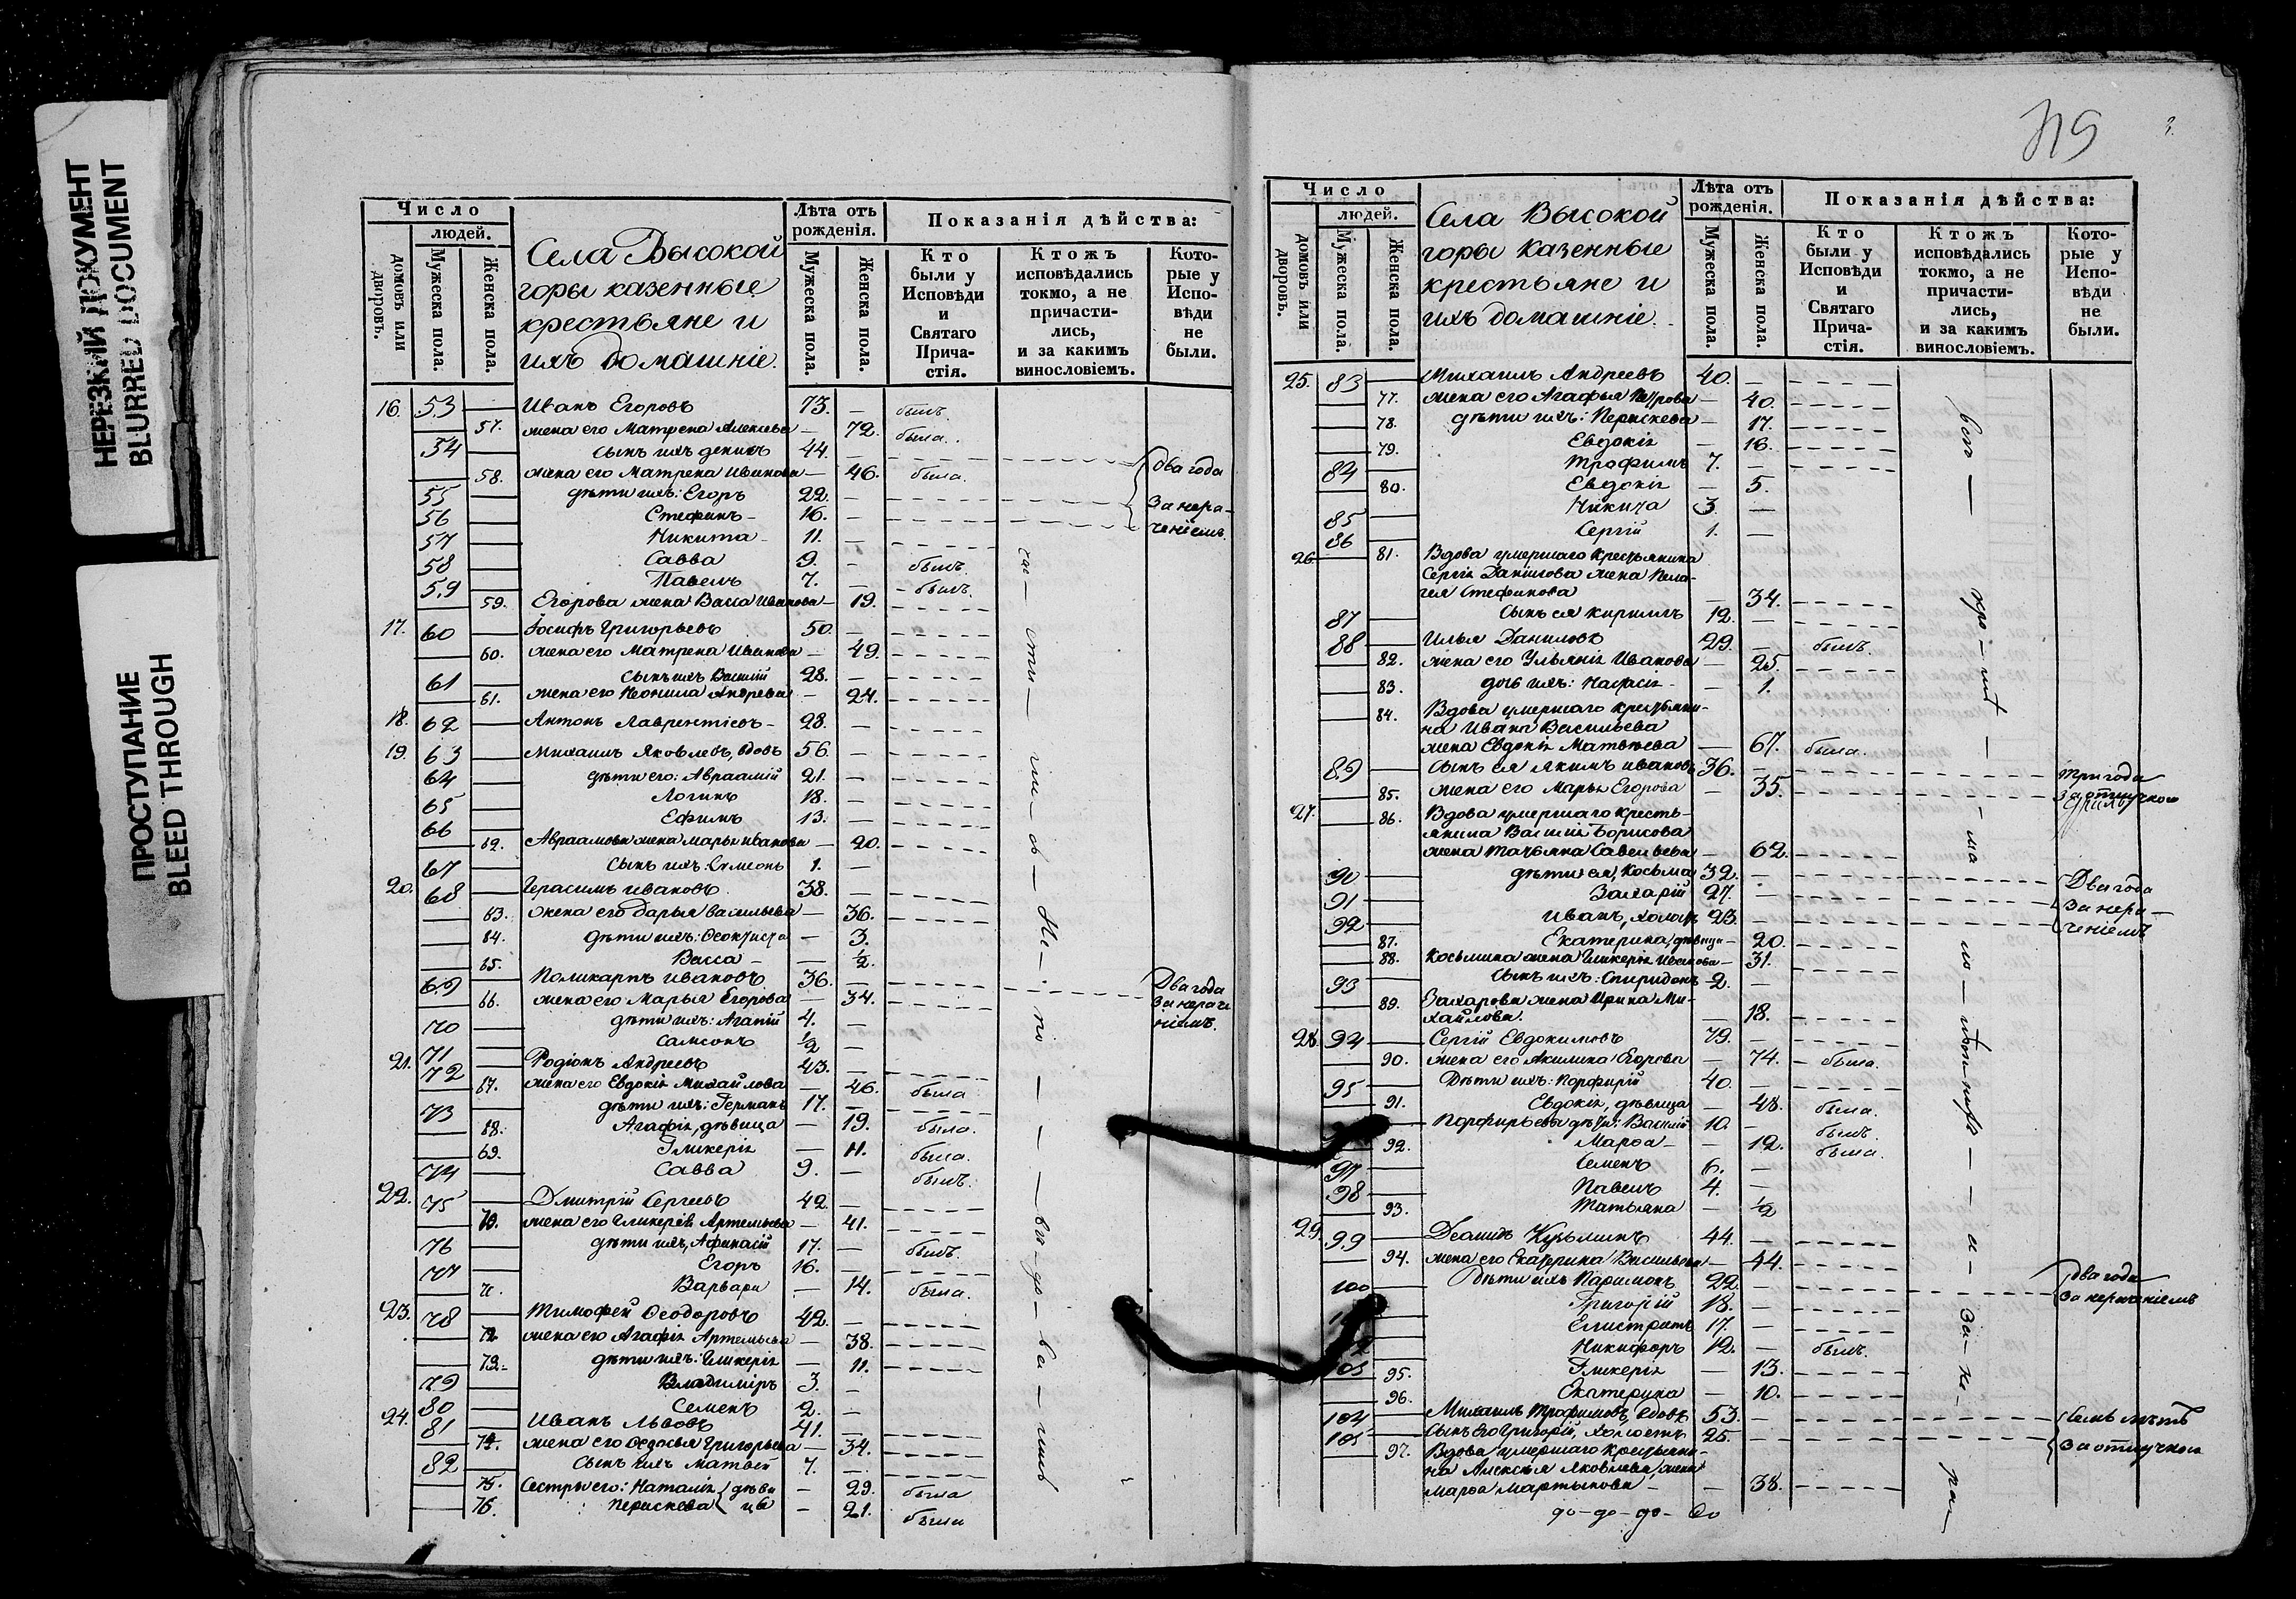 НЕРЕЗКИЙ ДОКУМЕНТ
BLURRED DOCUMENT
ПРОСТУПАНИЕ
BLEED THROUGH
Число
людей.
домовъ или дворовъ.
Мужеска пола.
Женска пола.
Села Высокой
горы казенные
крестьяне и
ихъ домашніе.
Лѣта отъ
рожденія.
Мужеска пола.
Женска пола.
Показанія дѣйства:
Кто
были у
Исповѣди
и
Святаго
Прича-
стія.
Ктожъ
исповѣдались
токмо, а не
причасти-
лись,
и за какимъ
винословіемъ.
Кото-
рые у
Испо-
вѣди
не
были.
16. 53 Иванъ Егоровъ 73. былъ.
57. жена его Матрена Алексѣева 72. была.
54 сынъ ихъ 44.
58. жена его Матрена Иванова 46. была.
55 дѣти ихъ: Егоръ 22.
56 Стефанъ 16.
57 Никита 11.
58 Савва 9. былъ.
59 Павелъ 7. былъ.
Два года
за нера-
ченіемъ.
59. Егорова жена Васса Иванова 19.
17. 60 Іосифъ Григорьевъ 50.
60. жена его Матрена Иванова 49.
61 сынъ ихъ Василій 28.
61. жена его Неонила Андреева 24.
18. 62 Антонъ Лаврентіевъ 28.
19. 63 Михаилъ Яковлевъ, вдовъ 56.
64 дѣти его: Авраамій 21.
65 Логинъ 18.
66 Ефимъ 13.
62. Авраамова жена Марья Иванова 20.
67 сынъ ихъ Симеонъ 1.
20. 68 Герасимъ Ивановъ 38.
63. жена его Дарья Васильева 36.
64. дѣти ихъ: Ѳеоктиста 3.
65. Васса ½.
69 Поликарпъ Ивановъ 36.
66. жена его Марья Егорова 34.
Два года
за нераче
ніемъ.
70 дѣти ихъ: Агапій 4.
71 Самсонъ ½
21. 72 Родіонъ Андреевъ 43.
67. жена его Евдокія Михайлова 46. была
73 дѣти ихъ: Германъ 17.
68. Агафія, дѣвица 19. была.
69. Гликерія 11. была.
74 Савва 9. былъ.
22. 75 Дмитрій Сергеевъ 42.
70. жена его Гликерія Артемьева 41.
76 дѣти ихъ, Афанасій 17. былъ.
77 Егоръ 16.
71. Варвара 14. была.
23. 78 Тимофей Ѳеодоровъ 42.
72 жена его Агафія Артемьева 38.
73. дѣти ихъ: Гликерія 11.
79 Владиміръ 3.
80 Семенъ 2.
24. 81 Иванъ Львовъ 41.
74. жена его Ѳедосья Григорьева 34.
82 сынъ ихъ Матвей 7.
75. Сестры его: Наталія дѣви 29. была
76. Параскева цы 21. была
719
Число
людей.
домовъ или дворовъ.
Мужеска пола.
Женска пола.
Села Высокой
горы казенные
крестьяне и
ихъ домашніе.
Лѣта отъ
рожденія.
Мужеска пола.
Женска пола.
Показанія дѣйства:
Кто
были у
Исповѣди
и
Святаго
Прича-
стія.
Ктожъ
исповѣдались
токмо, а не
причасти-
лись,
и за какимъ
винословіемъ.
Кото-
рые у
Испо-
вѣди
не
были.
25. 83 Михаилъ Андреевъ 40.
77. жена его Агафья Петрова 40.
78. дѣти ихъ: Параскева 17.
79. Евдокія 16.
84 Трофимъ 7.
80. Евдокія 5.
85 Никита 3.
86 Сергій 1.
26. 81. Вдова умершаго крестьянина
Сергія Данилова жена Пела-
гея Стефанова 34.
87 сынъ ея Кириллъ 12.
88 Илья Даниловъ 29. былъ.
82. жена его Ульянія Иванова 25.
83. дочь ихъ: Настасія 1.
84. Вдова умершаго крестьяни-
на Ивана Васильева
жена Евдокія Матвѣева 67. была.
89 сынъ ея Якимъ Ивановъ 36.
85. жена его Марья Егорова 35.
Три года
за отлучкою
27. 86. Вдова умершаго кресть-
янина Василія Борисова
жена Татьяна Савельева 62.
90 дѣти ея, Косьма 32.
91 Захарій 27.
92 Иванъ, холостъ 23.
Два года
за нера-
ченіемъ
87. Екатерина, дѣвица 20.
88. Косьмина жена Гликерія Иванова 31.
93 сынъ ихъ: Спиридонъ 2.
89. Захарова жена Ирина Ми-
хайлова. 18.
28. 94 Сергій Евдокимовъ 79.
90. жена его Акилина Егорова 74. была.
95 Дѣти ихъ: Порфирій 40.
91. Евдокія, дѣвица 48. была.
Порфирьевы дѣти: Василій 10. былъ.
92. Марѳа 12. была.
97 Семенъ 6.
98 Павелъ 4.
93. Татьяна ½
29. 99 Деомидъ Кузьминъ 44.
94. жена его Екатерина Васильева 44.
100 Дѣти ихъ Парамонъ 22.
Два года
за нераченіемъ
Григорій 18.
Елистратъ 17.
Никифоръ 12. былъ.
95. Гликерія 13.
96. Екатерина 10.
104 Михаилъ Трофимовъ, вдовъ 53.
105 сынъ его Григорій, холостъ 25.
Семь лѣтъ
за отлучкою
97. Вдова умершаго крестьяни-
на Алексѣя Яковлева, жена
Марѳа Мартынова 38.